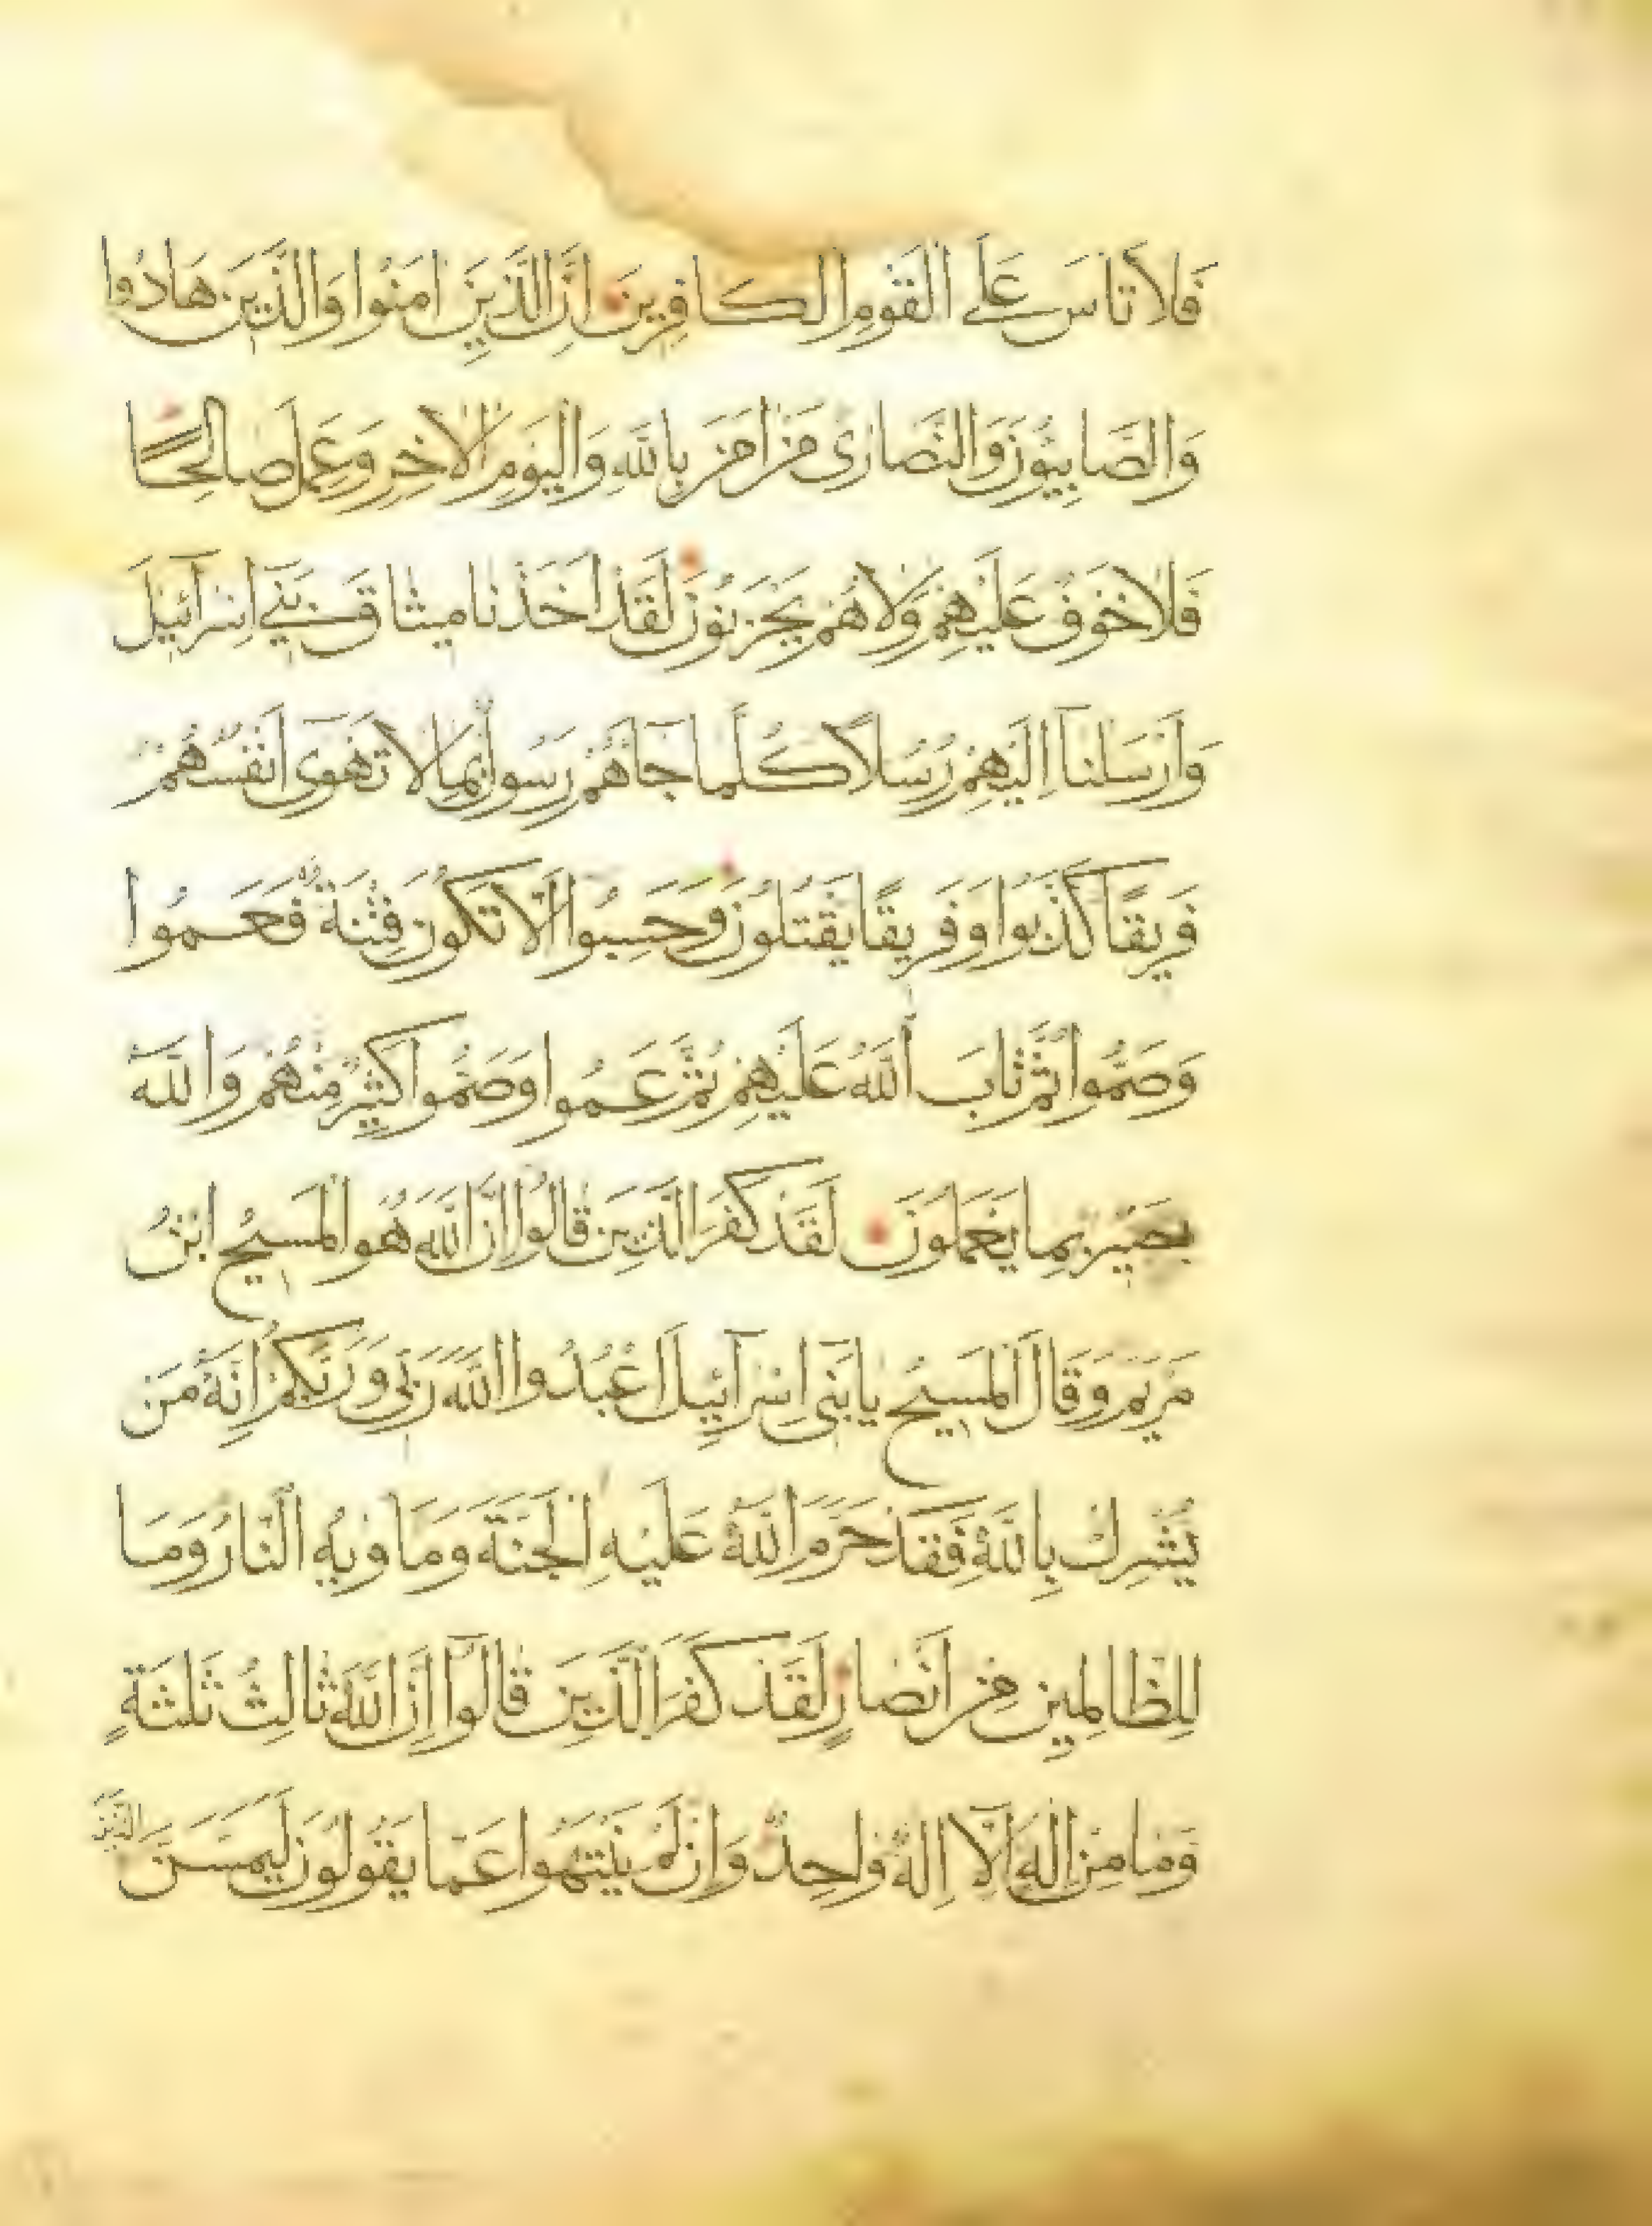 فَلَا تَاسَ عَلَى الْقَوْمِ الْكَافِرِينَ اِنَّ الَّذِينَ اٰمَنُوا وَالَّذِينَ هَادُوا
وَالصَّابِيُونَ وَالنَّصَارٰى مَنْ اٰمَنَ بِاللّٰهِ وَالْيَوْمِ الْاٰخِرِ وَعَمِلَ صَالِحًا
فَلَا خَوْفٌ عَلَيْهِمْ وَلَا هُمْ يَحْزَنُونَ لَقَدْ اَخَذْنَا مِيثَاقَ بَنِٓي اِسْرَآئِيلَ
وَاَرْسَلْنَآ اِلَيْهِمْ رُسُلًا كُلَّمَا جَآءَهُمْ رَسُولٌ بِمَا لَا تَهْوٰٓى اَنْفُسُهُمْ
فَرِيقًا كَذَّبُوا وَفَرِيقًا يَقْتُلُونَ وَحَسِبُوا اَلَّا تَكُونَ فِتْنَةٌ فَعَمُوا
وَصَمُّوا ثُمَّ تَابَ اللّٰهُ عَلَيْهِمْ ثُمَّ عَمُوا وَصَمُّوا كَثِيرٌ مِنْهُمْ وَاللّٰهُ
بَصِيرٌ بِمَا يَعْمَلُونَ لَقَدْ كَفَرَ الَّذِينَ قَالُوا اِنَّ اللّٰهَ هُوَ الْمَسِيحُ ابْنُ
مَرْيَمَ وَقَالَ الْمَسِيحُ يَابَنِٓى اِسْرَآئِيلَ اعْبُدُوا اللّٰهَ رَبِّي وَرَبَّكُمْ اِنَّهُ مَنْ
يُشْرِكْ بِاللّٰهِ فَقَدْ حَرَّمَ اللّٰهُ عَلَيْهِ الْجَنَّةَ وَمَاْوٰيهُ النَّارُ وَمَا
لِلظَّالِمِينَ مِنْ اَنْصَارٍ لَقَدْ كَفَرَ الَّذِينَ قَالُوٓا اِنَّ اللّٰهَ ثَالِثُ ثَلٰثَةٍ
وَمَا مِنْ اِلٰهٍ اِلَّآ اِلٰهٌ وَاحِدٌ وَاِنْ لَمْ يَنْتَهُوا عَمَّا يَقُولُونَ لَيَمَسَّنَّ الَّذِينَ